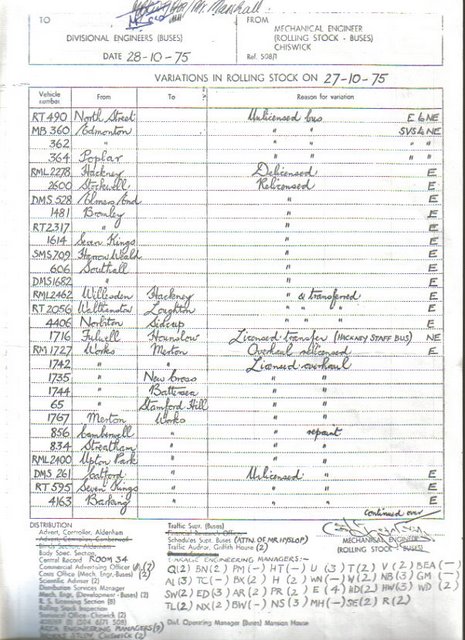 Mr. Marshall.
TO
DIVISIONAL ENGINEERS (BUSES)
DATE 28-10-75
FROM
MECHANICAL ENGINEER
(ROLLING STOCK - BUSES)
CHISWICK
Ref. 508/1
VARIATIONS IN ROLLING STOCK ON 27-10-75
Vehicle number From To Reason for variation
RT 490 North Street Unlicensed bus E 6 NE
MB 360 Edmonton " " SVS 6 NE
362 " " " " "
364 Poplar " " " "
RML 2278 Hackney Delicensed E
2600 Stockwell Relicensed E
DMS 528 Elmers End " E
1481 Bromley " E
RT 2317 " " E
1614 Seven Kings " E
SMS 709 Harrow Weald " E
606 Southall " E
DMS 1682 " " E
RML 2462 Willesden Hackney " & transferred E
RT 2056 Walthamstow Loughton " " " E
4406 Norbiton Sidcup " " " E
1716 Fulwell Hounslow Licensed transfer (HACKNEY STAFF BUS) NE
RM 1727 Works Merton Overhaul relicensed E
1742 " " Licensed overhaul
1735 " New Cross " "
1744 " Battersea " "
65 " Stamford Hill " "
1767 Merton Works " "
856 Camberwell " " repaint
834 Streatham " " "
RML 2400 Upton Park " " "
DMS 261 Catford Unlicensed " E
RT 595 Seven Kings " " E
4163 Barking " " E
continued over
MECHANICAL ENGINEER
(ROLLING STOCK - BUSES)
DISTRIBUTION
Advert. Controller, Aldenham
Body Spec.
Central Record ROOM 34
Commercial Advert. Officer
Costs Office (Mech. Engr.-Buses)
Scientific Adviser (2)
Distribution Services Manager
Mech. Engr. (Development - Buses) (2)
R. S. Licensing Section (8)
Rolling Stock Inspection
Statistical Office - Chiswick (2)
AREA ENGINEERING MANAGERS
Traffic Supt. (Buses)
Financial Research Office
Schedules Supt. Buses (ATTN. OF MR. HYSLOP)
Traffic Auditor, Griffith House (2)
GARAGE ENGINEERING MANAGERS:-
Q(2) BN(2) PM(-) HT(-) U(3) T(2) V(2) BEA(-)
AL(3) TC(-) BX(2) H(2) WN(-) W(2) NB(3) GM(-)
SW(2) ED(3) AR(2) PR(2) E(4) HD(2) HW(3) WD(2)
TL(2) NX(2) BW(-) NS(3) MH(-) SE(2) R(2)
Divl. Operating Manager (Buses) Mansion House